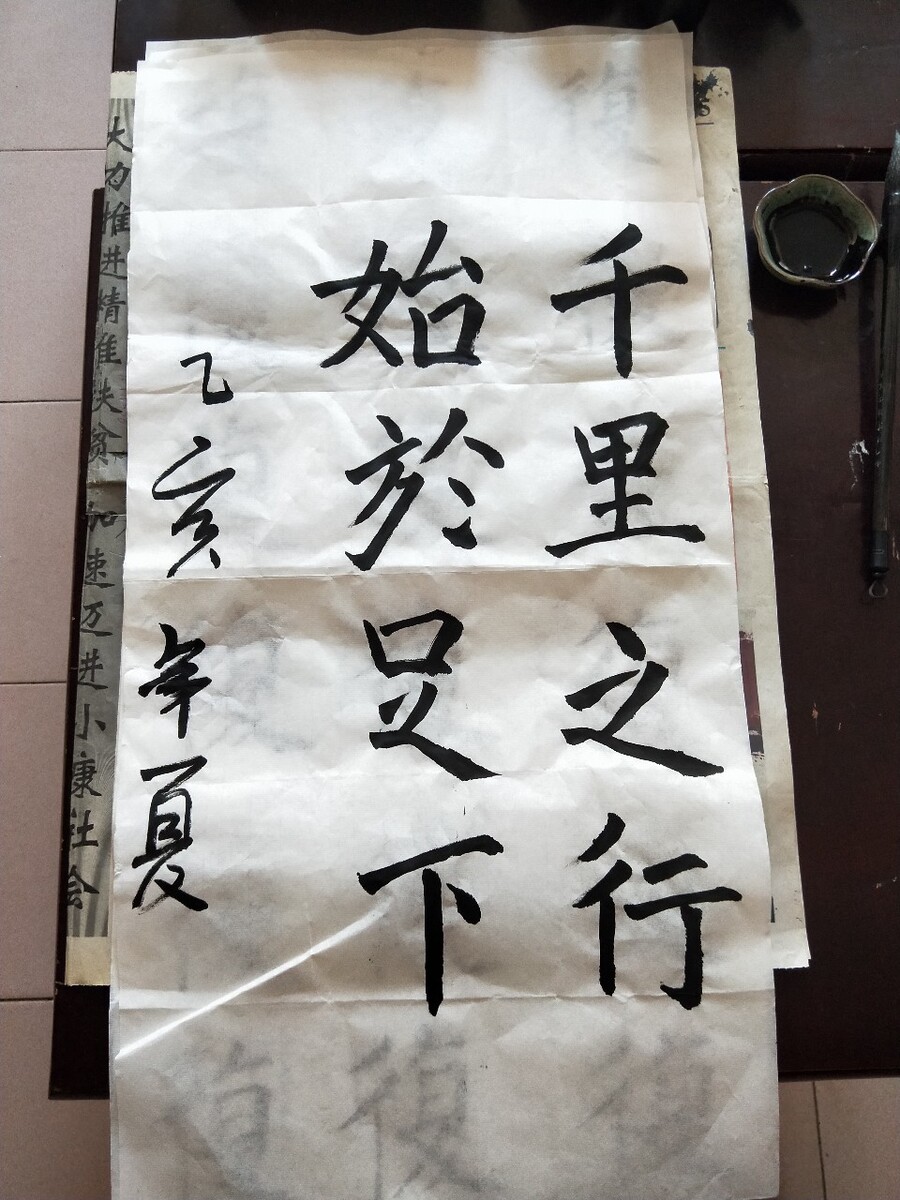 千里之行
始於足下
乙亥年夏
大力推进精准扶贫 加速迈进小康社会